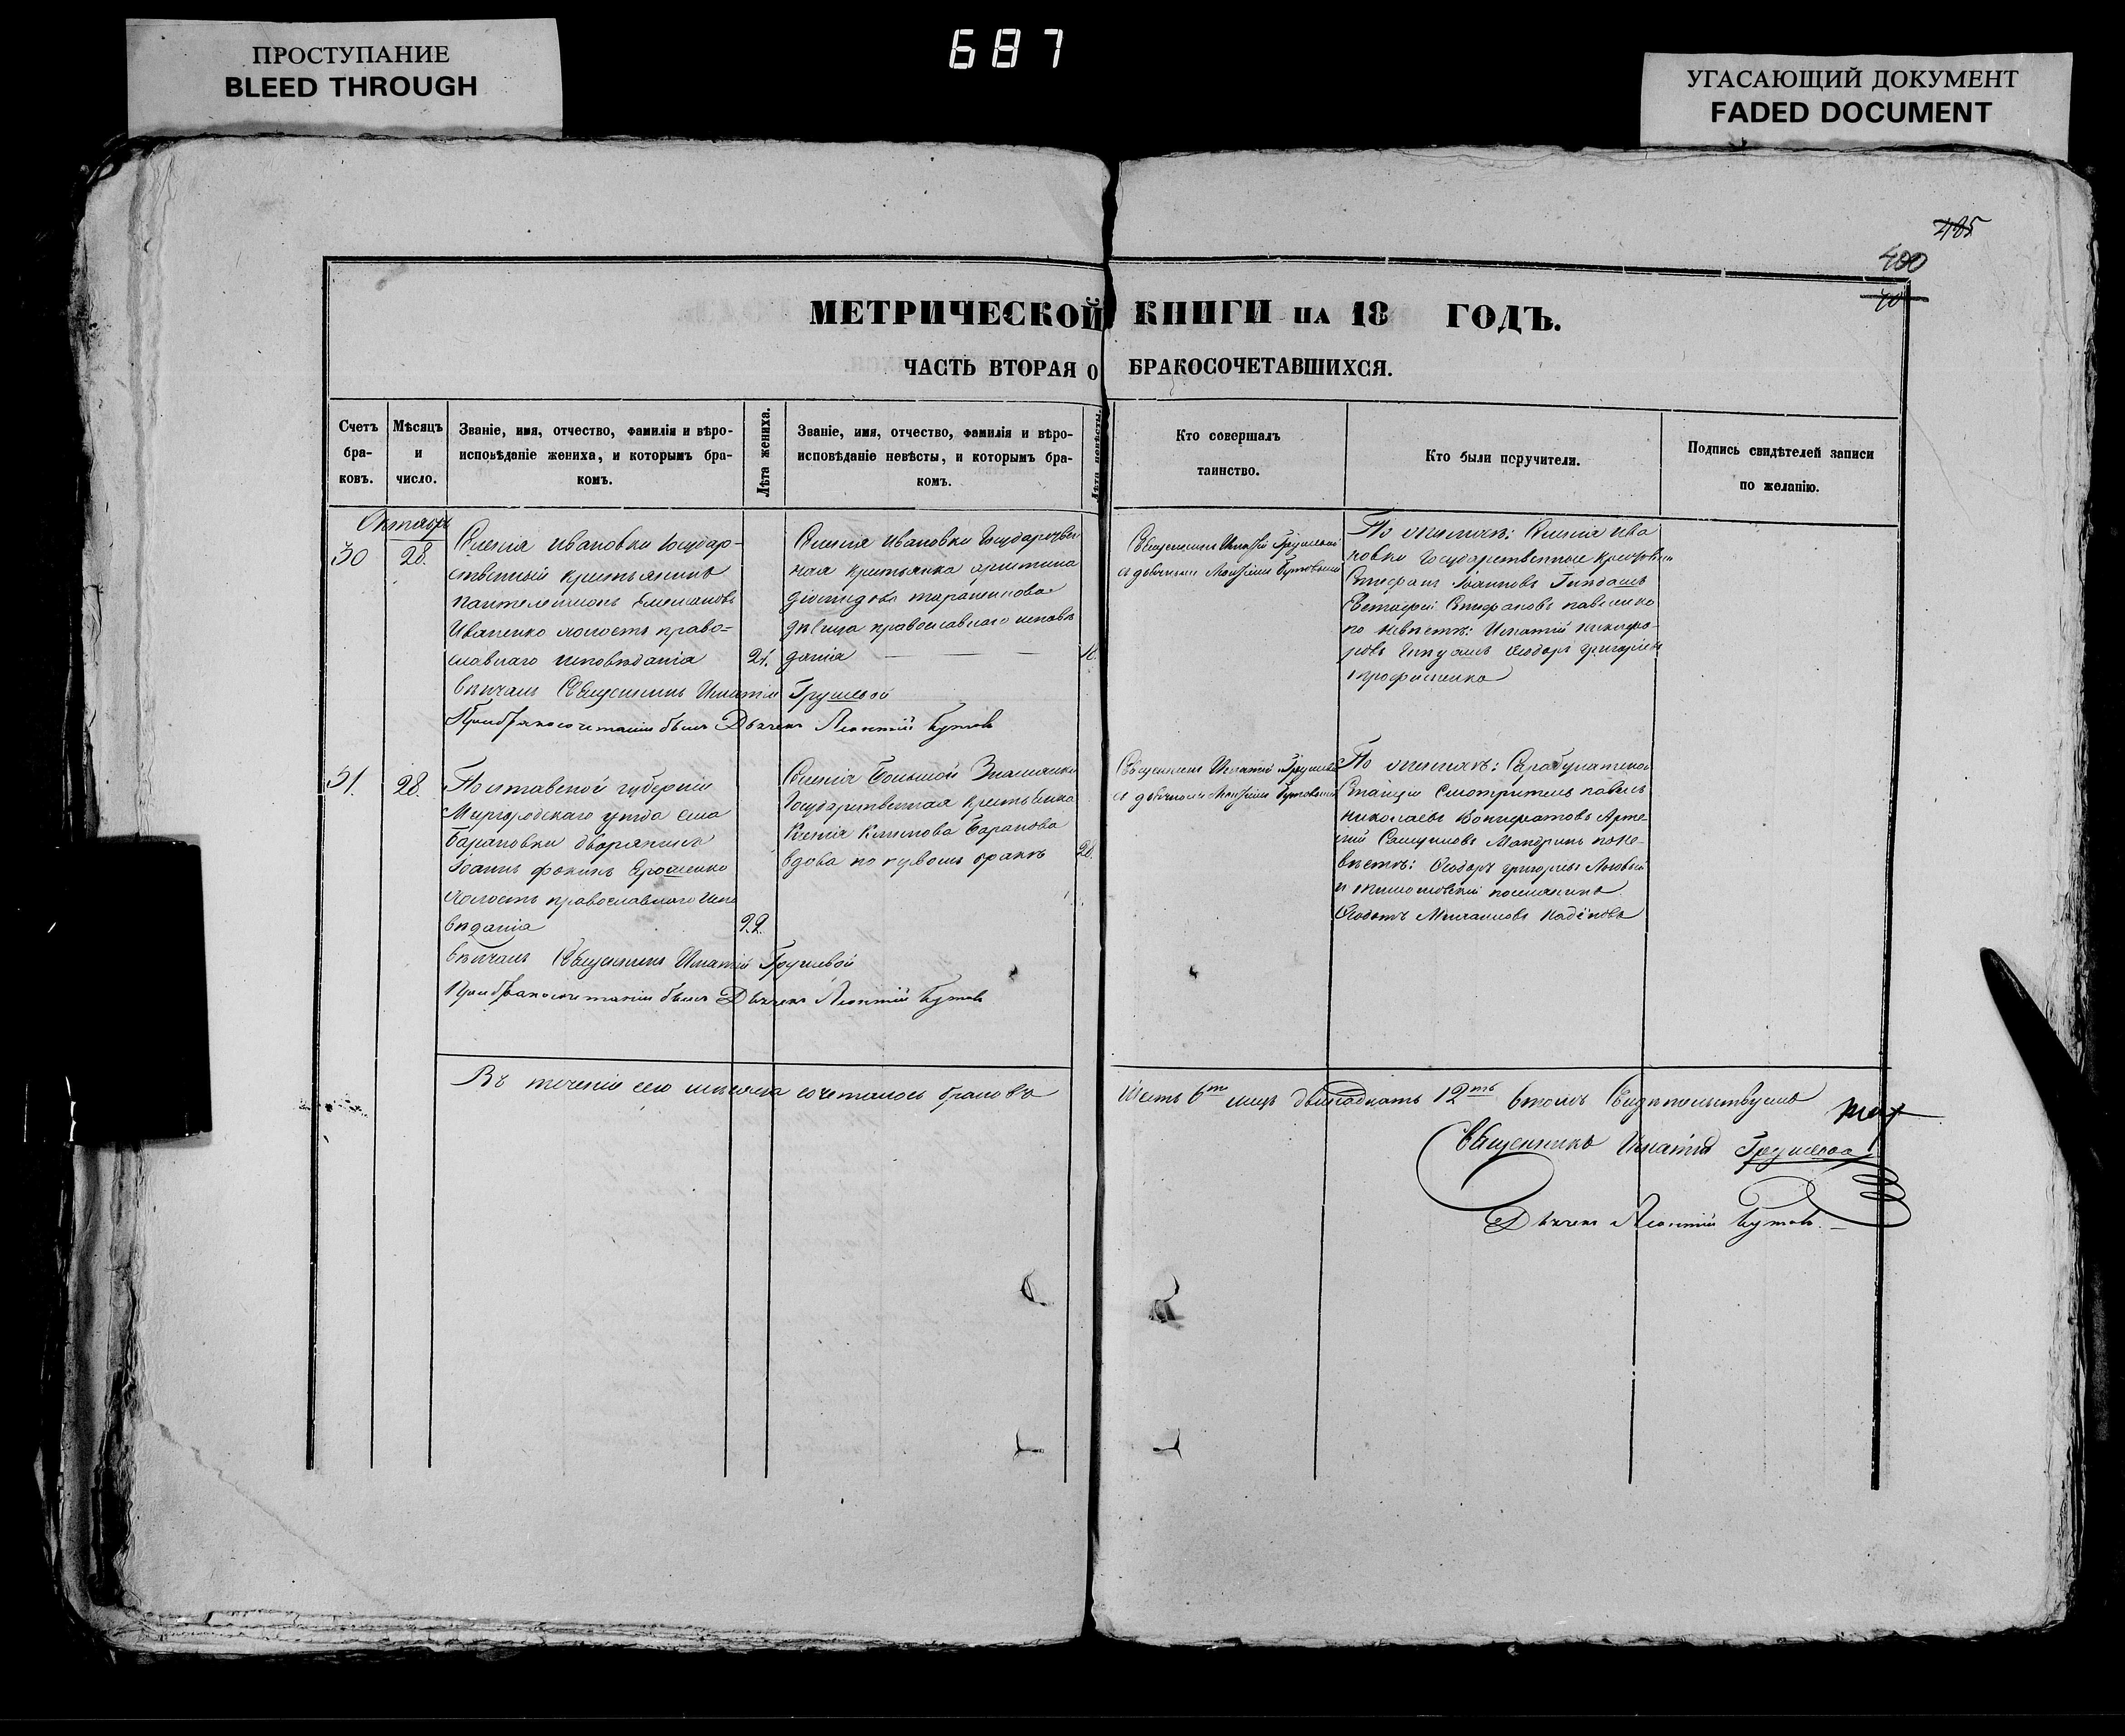 ПРОСТУПАНИЕ
BLEED THROUGH
687
УГАСАЮЩИЙ ДОКУМЕНТ
FADED DOCUMENT
405
400
МЕТРИЧЕСКОЙ КНИГИ НА 18 ГОДЪ.
ЧАСТЬ ВТОРАЯ О БРАКОСОЧЕТАВШИХСЯ.
Счетъ бра-ковъ.
Мѣсяцъ и число.
Званіе, имя, отчество, фамилія и вѣро-
исповѣданіе жениха, и которымъ бра-
комъ.
Лѣта жениха.
Званіе, имя, отчество, фамилія и вѣро-
исповѣданіе невѣсты, и которымъ бра-
комъ.
Лѣта невѣсты.
Кто совершалъ
таинство.
Кто были поручители.
Подпись свидѣтелей записи
по желанію.
Октябрь
30
28.
Селенія Ивановки Государ-
ственный крестьянинъ
Пантелеимонъ
Иваненко холостъ право-
славнаго исповѣданія
21.
Селенія Ивановки Государствен
ная крестьянка Христина
Діомидова
дѣвица православнаго исповѣ
данія
Священникъ Игнатій Грушевой
съ дьячкомъ
По женихѣ: Селенія Ива
новки Государственные крестьяне
Стефанъ Іоанновъ
Евстафій Стефановъ Павленко
по невѣстѣ: Игнатій Никифо-
ровъ Ѳеодоръ Григорьевъ
Трофименко
вѣнчалъ Священникъ Игнатій Грушевой
При бракосочетаніи былъ Дьячекъ Леонтій Бутовъ
31.
28.
Полтавской губерніи
Миргородскаго уѣзда села
Барановки дворянинъ
Іоаннъ Фокинъ Ярошенко
холостъ православнаго испо
вѣданія
22.
Селенія Большой Знаменки
Государственная крестьянка
Ксенія Климова Баранова
вдова по первомъ бракѣ
20.
Священникъ Игнатій Грушевой
съ дьячкомъ
По женихѣ:
Станціи Смотритель Павелъ
Николаевъ Бонифатовъ Арте-
мій Самуиловъ Мандрикъ по не-
вѣстѣ: Ѳеодоръ Григорьевъ
и поселянинъ
Ѳедотъ Михаиловъ
вѣнчалъ Священникъ Игнатій Грушевой
При бракосочетаніи былъ Дьячекъ Леонтій Бутовъ
Въ теченіи сего мѣсяца сочеталось браковъ шесть 6ть лицъ двенадцать 12ть въ томъ Свидѣтельствуемъ
Священникъ Игнатій Грушевой
Дьячекъ Леонтій Бутовъ.